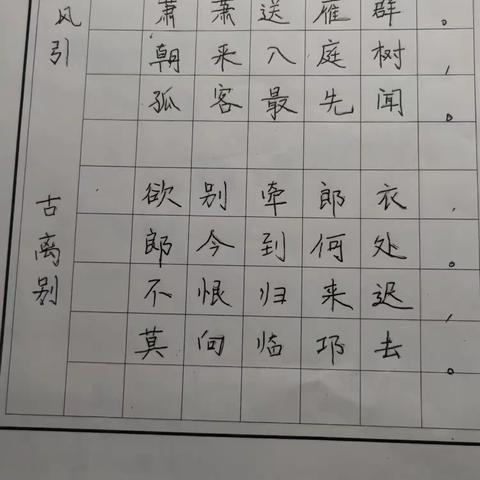 风引
萧萧送雁群。
朝来入庭树,
孤客最先闻。
古离别
欲别牵郎衣,
郎今到何处。
不恨归来迟,
莫向临邛去。